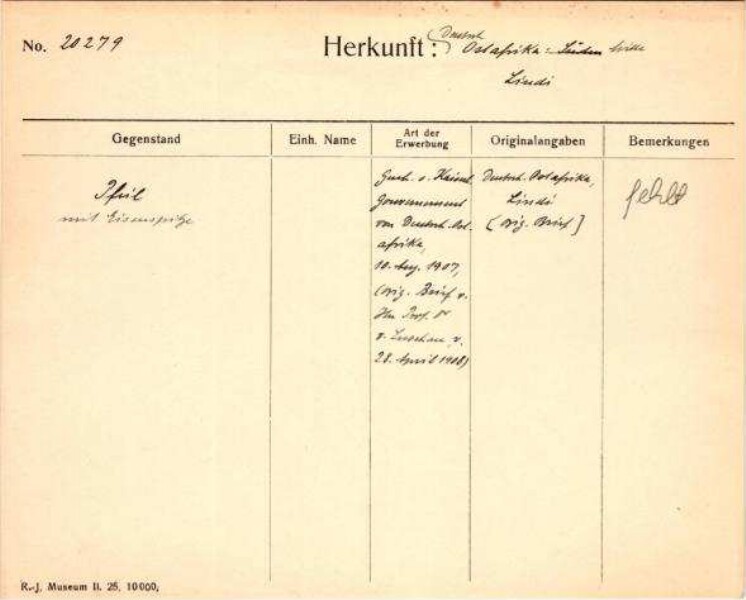 No. 20279
Herkunft: Deutsch Ostafrika: Süden
Lindi
Gegenstand
Einh. Name
Art der Erwerbung
Originalangaben
Bemerkungen
Pfeil
mit Eisenspitze
Gesch. v. Kaiserl.
Gouvernement
von Deutsch-Ost-
afrika,
10. Aug. 1907,
(orig. Brief v.
Hn Prof. Dr
v. Luschan, v.
28. April 1908)
Deutsch. Ostafrika,
Lindi
(orig. Brief]
fehlt
R.-J. Museum II. 25, 10000,